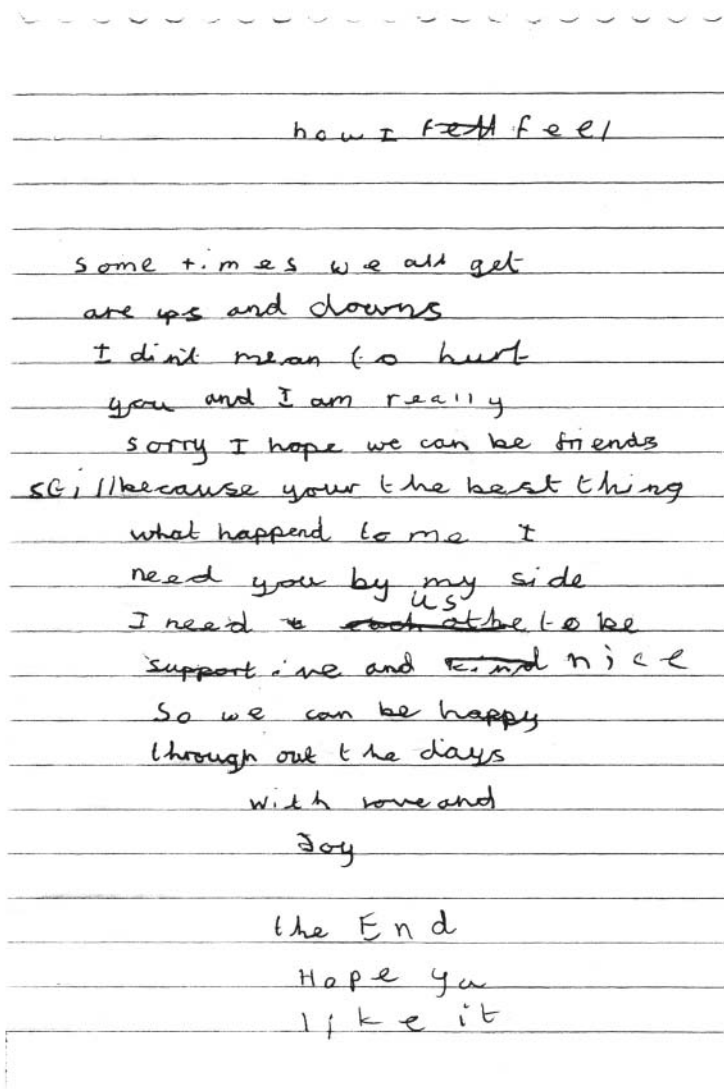 how I feel
some times we all get
are ups and downs
I din't mean to hurt
you and I am really
sorry I hope we can be friends
still because your the best thing
what happend to me I
need you by my side
I need us to be
supportive and nice
So we can be happy
through out the days
with love and
Joy
the End
Hope you
like it